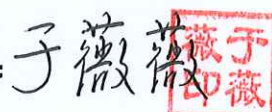 :于薇薇
于薇
薇印